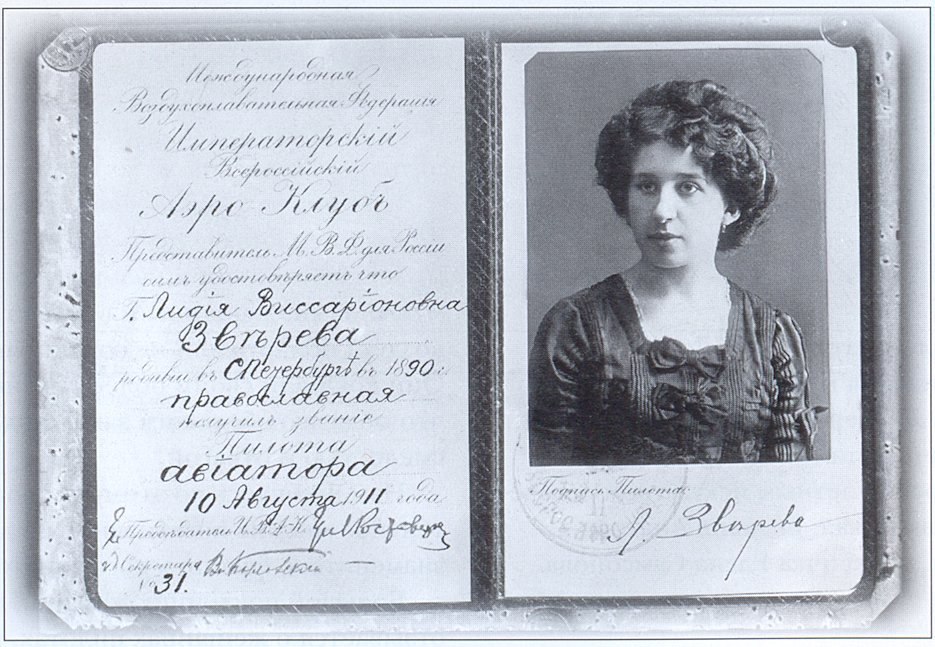 Международная
Воздухоплавательная Федерація
Императорскій
Всероссійскій
Аэро-Клубъ
Представитель М. В. Ф. для Россіи
симъ удостовѣряетъ что
Г. Лидія Виссаріоновна
Звѣрева
родивш въ СПетербургѣ въ 1890 г
православная
получилъ званіе
Пилота
авіатора
10 Августа 1911 года
Предсѣдатель И. В. А.-К.
Секретарь
№ 31.
Подпись Пилота
Л. Звѣрева